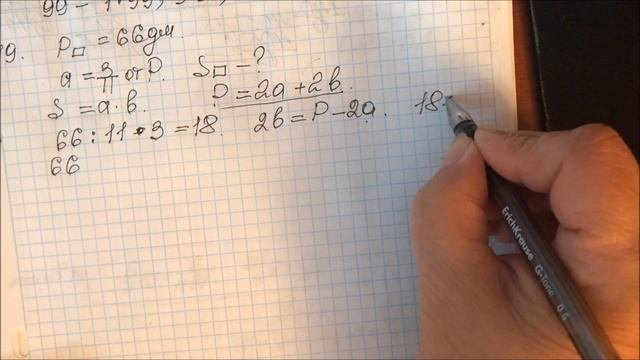 99 - 1
9. P□ = 66 дм.
a = 3/11 от P. S□ - ?
S = a · b. P = 2a + 2b.
66 : 11 · 3 = 18. 2b = P - 2a. 18
66
ErichKrause G-Tone 0.6